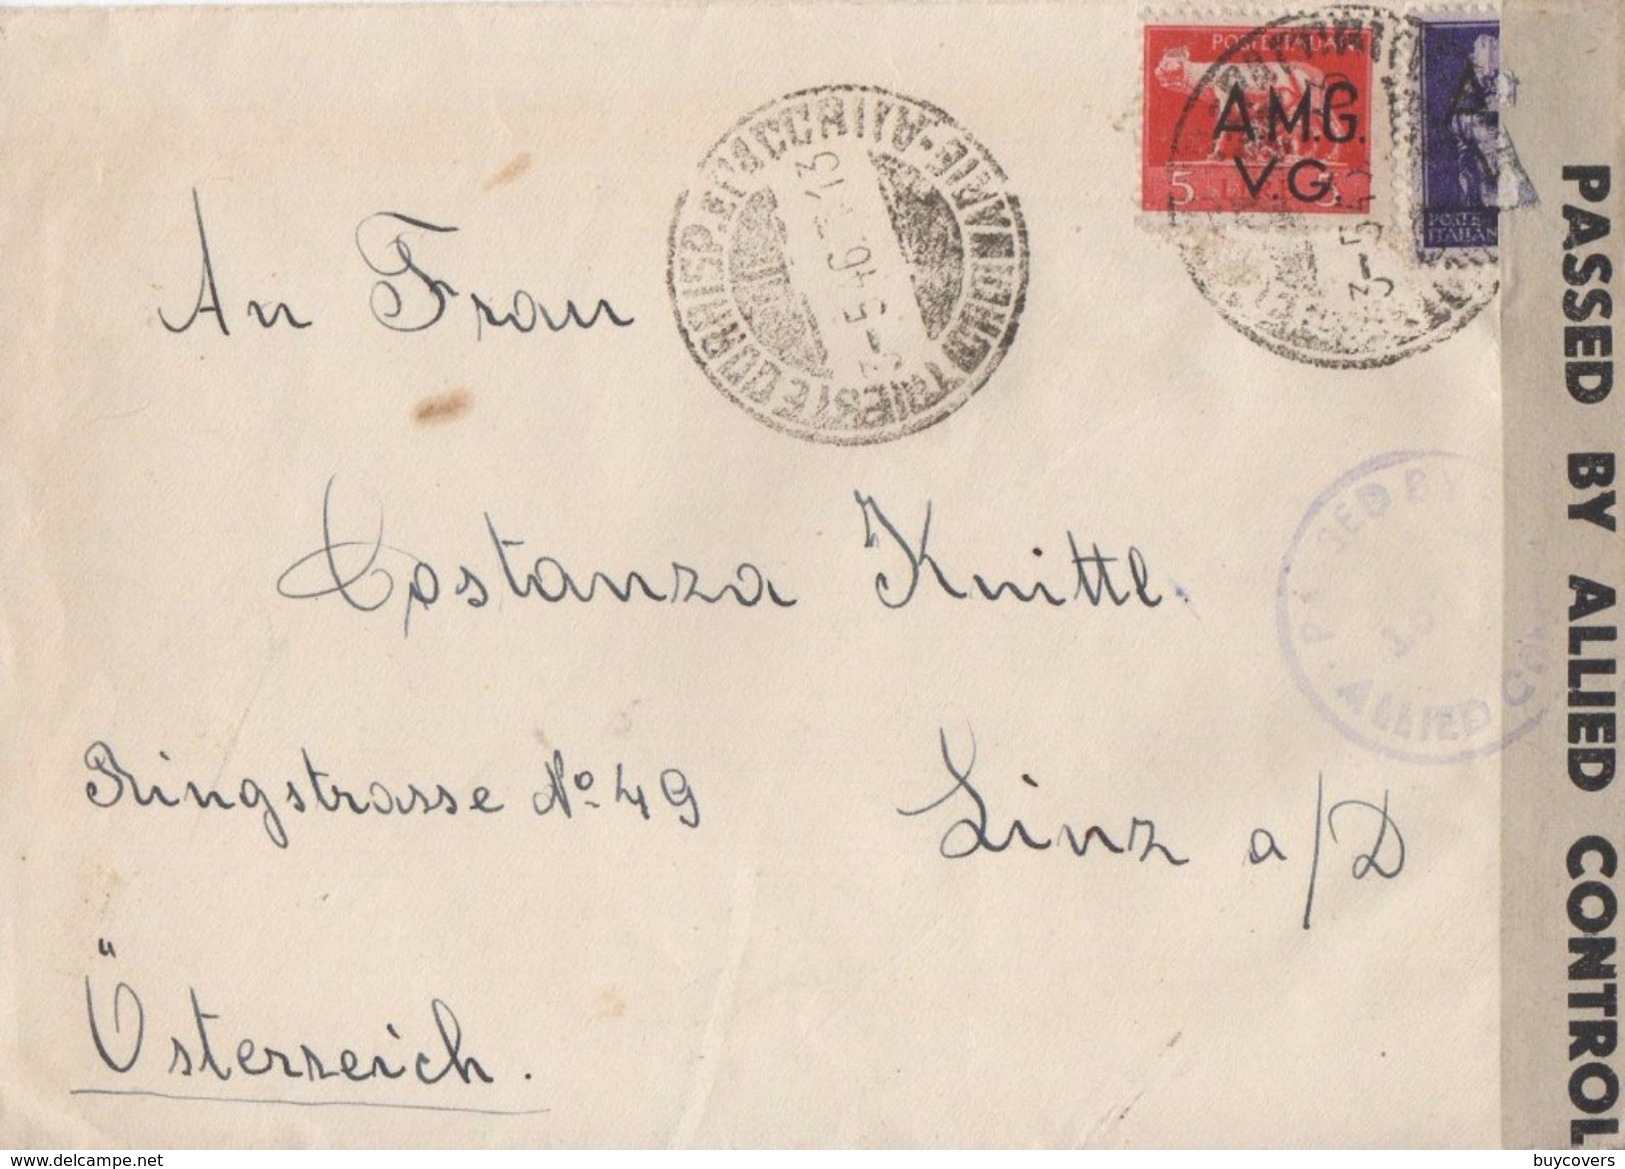 POSTE ITALIANE
A.M.G.
V.G.
5 LIRE 5
A
POSTE
ITALIAN
TRIESTE CORRISP. E PACCHI
3-5-46-13
3-5
An Frau
Costanza Knittl.
Ringstrasse No. 49
Linz a/D
Österreich.
PASSED BY
ALLIED CO
PASSED BY ALLIED CONTROL
www.delcampe.net
buycovers